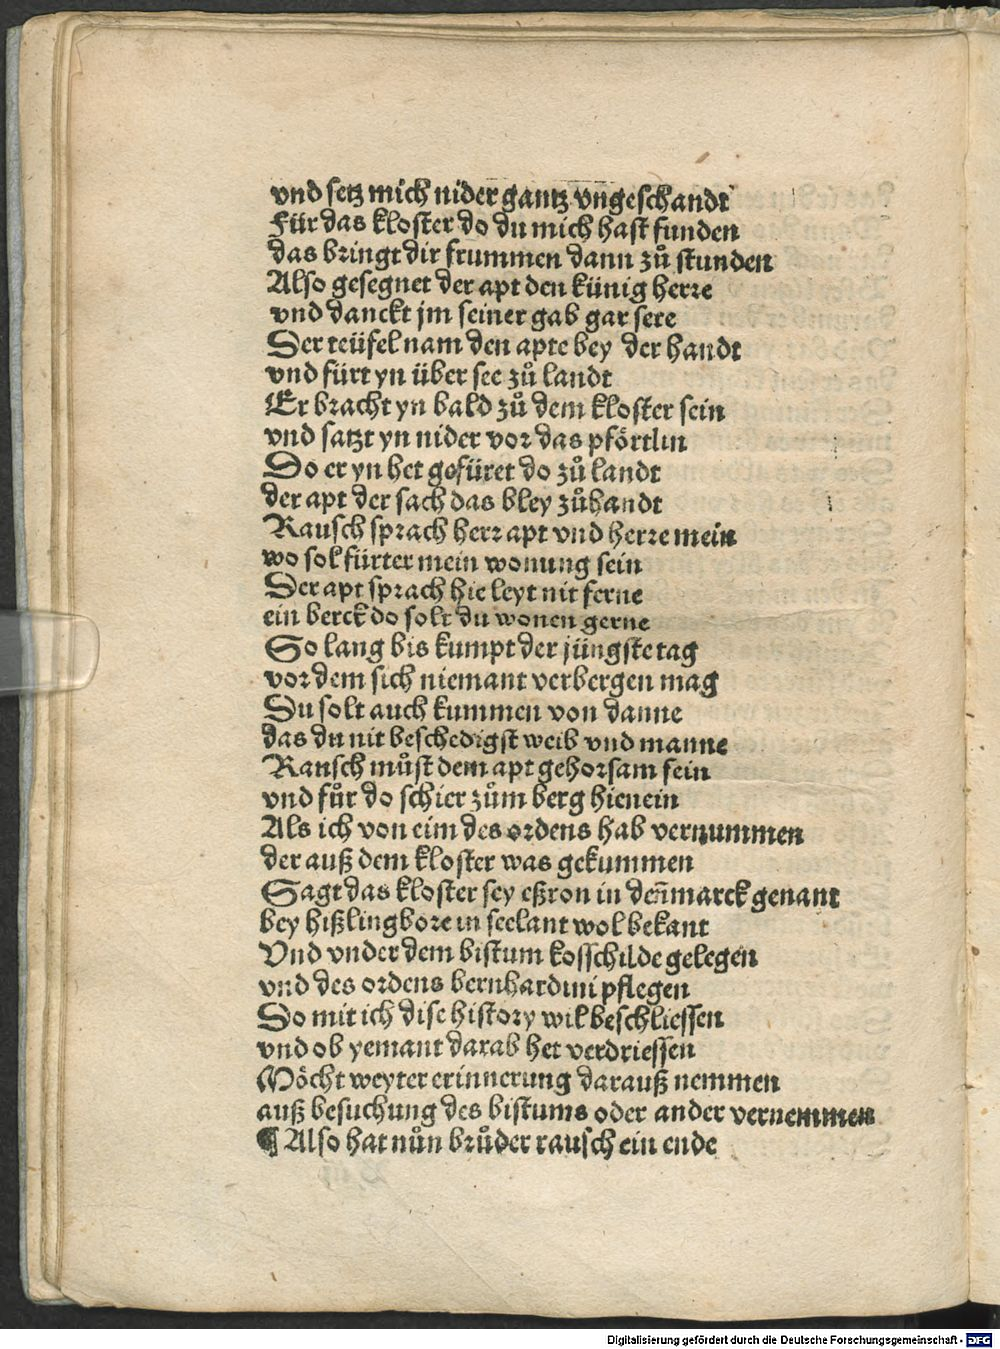 vnd setz mich nider gantz vngeschandt
Für das kloster do du mich hast funden
das bringt dir frummen dann zů stunden
Also gesegnet der apt den künig herre
vnd danckt jm seiner gab gar sere
Der teüfel nam den apte bey der handt
vnd fürt yn über see zů landt
Er bracht yn bald zů dem kloster sein
vnd satzt yn nider vor das pförtlin
Do er yn het gefüret do zů landt
der apt der sach das bley zůhandt
Rausch sprach herr apt vnd herre mein
wo sol fürter mein wonung sein
Der apt sprach hie leyt nit ferne
ein berck do solt du wonen gerne
So lang bis kumpt der jüngste tag
vor dem sich niemant verbergen mag
Du solt auch kummen von danne
das du nit beschedigst weib vnd manne
Rausch můst dem apt gehorsam sein
vnd fůr do schier zům berg hienein
Als ich von eim des ordens hab vernummen
der auß dem kloster was gekummen
Sagt das kloster sey eßron in den̄marck genant
bey hißlingbore in seelant wol bekant
Vnd vnder dem bistum kosschilde gelegen
vnd des ordens bernhardini pflegen
Do mit ich dise history wil beschliessen
vnd ob yemant darab het verdriessen
Möcht weyter erinnerung darauß nemmen
auß besuchung des bistums oder ander vernemmen
¶ Also hat nůn brůder rausch ein ende
Digitalisierung gefördert durch die Deutsche Forschungsgemeinschaft - DFG